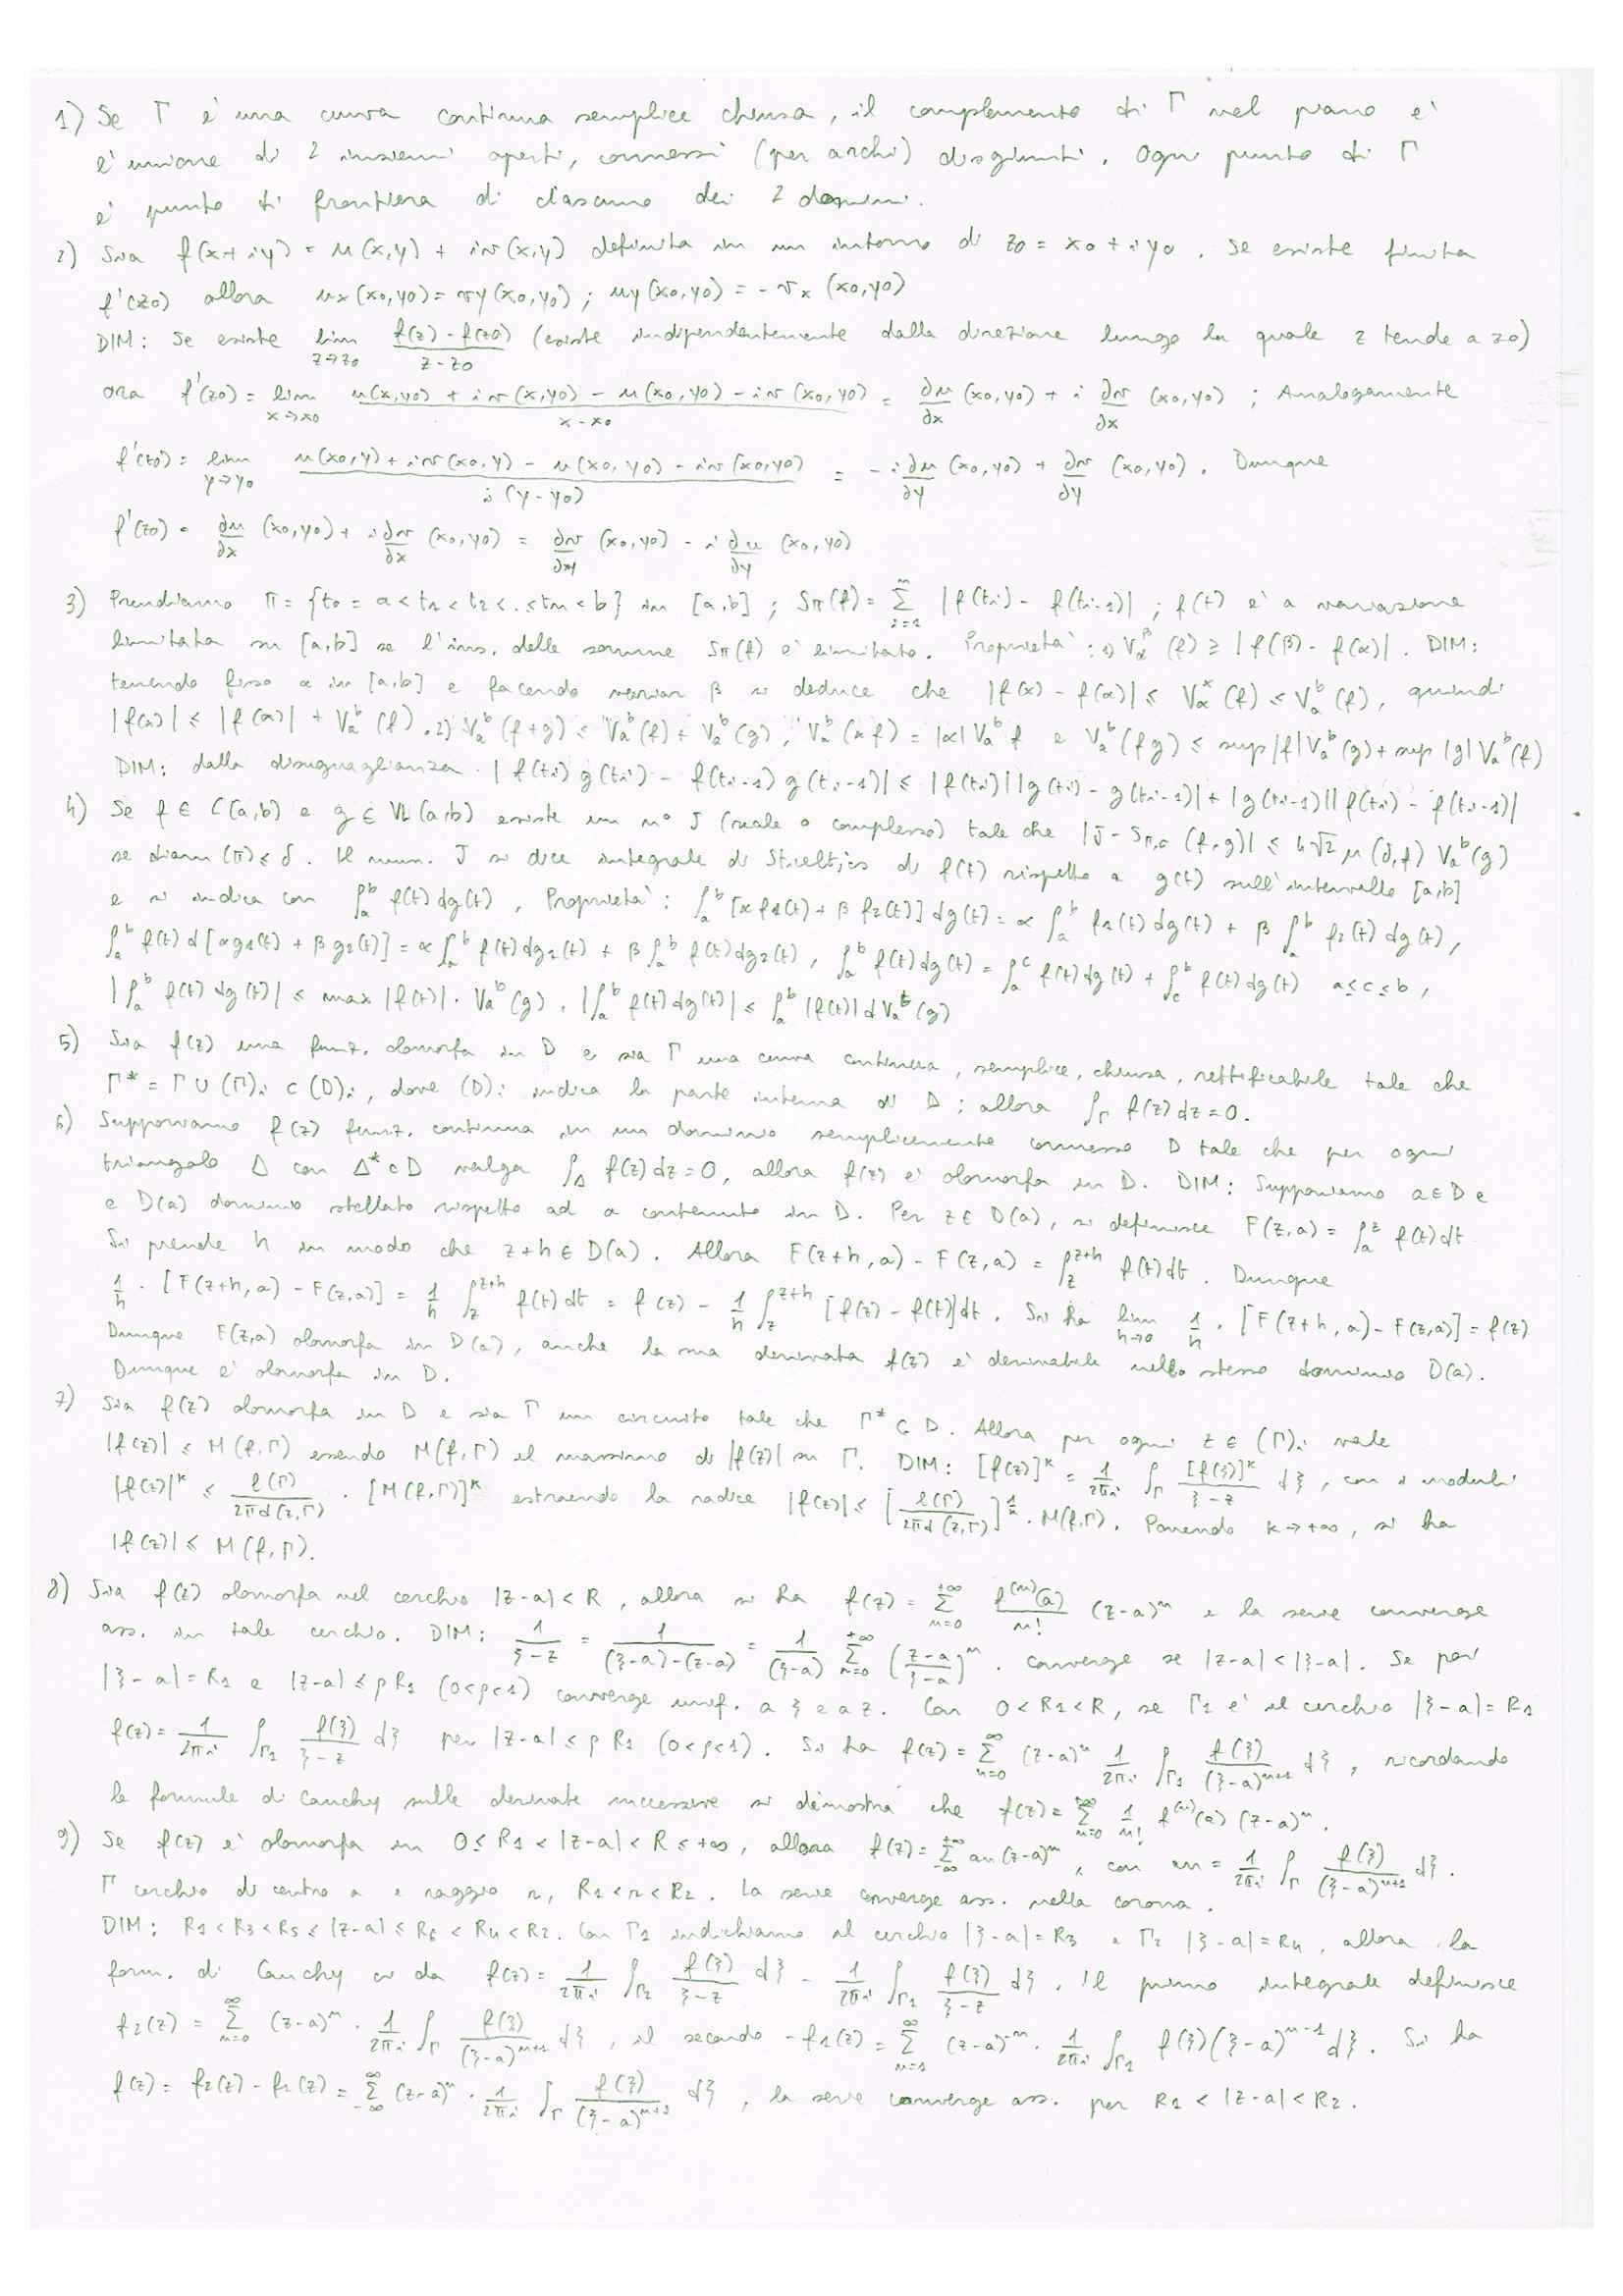 1) Se Γ è una curva continua semplice chiusa, il complemento di Γ nel piano è
è unione di 2 insiemi aperti, connessi (per archi) disgiunti. Ogni punto di Γ
è punto di frontiera di ciascuno dei 2 domini.
2) Sia f(x+iy) = u(x,y) + iv(x,y) definita in un intorno di z0 = x0 + iy0. Se esiste finita
f'(z0) allora ux(x0,y0) = vy(x0,y0); uy(x0,y0) = -vx(x0,y0)
DIM: Se esiste lim z→z0 (f(z) - f(z0))/(z - z0) (esiste indipendentemente dalla direzione lungo la quale z tende a z0)
ora f'(z0) = lim x→x0 (u(x,y0) + iv(x,y0) - u(x0,y0) - iv(x0,y0))/(x-x0) = ∂u/∂x (x0,y0) + i ∂v/∂x (x0,y0); Analogamente
f'(z0) = lim y→y0 (u(x0,y) + iv(x0,y) - u(x0,y0) - iv(x0,y0))/(i(y-y0)) = -i ∂u/∂y (x0,y0) + ∂v/∂y (x0,y0). Dunque
f'(z0) = ∂u/∂x (x0,y0) + i ∂v/∂x (x0,y0) = ∂v/∂y (x0,y0) - i ∂u/∂y (x0,y0)
3) Prendiamo π = {t0 = a < t1 < t2 < . ≤ tn < b} in [a,b]; Sπ(f) = Σ_{i=1}^{n} |f(ti) - f(ti-1)|; f(t) è a variazione
limitata su [a,b] se l'ins. delle somme Sπ(f) è limitato. Proprietà: 1) V_α^β (f) ≥ |f(β) - f(α)|. DIM:
tenendo fisso α in [a,b] e facendo variar β si deduce che |f(x) - f(α)| ≤ V_α^x (f) ≤ V_a^b (f), quindi
|f(x)| ≤ |f(α)| + V_a^b (f). 2) V_a^b (f+g) ≤ V_a^b (f) + V_a^b (g), V_a^b (αf) = |α| V_a^b f e V_a^b (fg) ≤ sup|f| V_a^b (g) + sup |g| V_a^b (f)
DIM: dalla disuguaglianza |f(ti) g(ti) - f(ti-1) g(ti-1)| ≤ |f(ti)| |g(ti) - g(ti-1)| + |g(ti-1)| |f(ti) - f(ti-1)|
4) Se f ∈ C(a,b) e g ∈ VL(a,b) esiste un n° J (reale o complesso) tale che |J - Sπ,σ (f,g)| ≤ 4√2 μ(δ,f) V_a^b (g)
se diam (π) ≤ δ. Il num. J si dice integrale di Stieltjes di f(t) rispetto a g(t) sull'intervallo [a,b]
e si indica con ∫_a^b f(t) dg(t), Proprietà: ∫_a^b [α f1(t) + β f2(t)] dg(t) = α ∫_a^b f1(t) dg(t) + β ∫_a^b f2(t) dg(t),
∫_a^b f(t) d[αg1(t) + βg2(t)] = α ∫_a^b f(t) dg1(t) + β ∫_a^b f(t) dg2(t), ∫_a^b f(t) dg(t) = ∫_a^c f(t) dg(t) + ∫_c^b f(t) dg(t) a ≤ c ≤ b,
|∫_a^b f(t) dg(t)| ≤ max |f(t)| · V_a^b (g), |∫_a^b f(t) dg(t)| ≤ ∫_a^b |f(t)| dV_a^t (g)
5) Sia f(z) una funz. olomorfa in D e sia Γ una curva continua, semplice, chiusa, rettificabile tale che
Γ* = Γ ∪ (Γ)i ⊂ (D)i, dove (D)i indica la parte interna di D; allora ∫_Γ f(z) dz = 0.
6) Supponiamo f(z) funz. continua in un dominio semplicemente connesso D tale che per ogni
triangolo Δ con Δ* ⊂ D valga ∫_Δ f(z) dz = 0, allora f(z) è olomorfa in D. DIM: Supponiamo a ∈ D e
e D(a) dominio stellato rispetto ad a contenuto in D. Per z ∈ D(a), si definisce F(z,a) = ∫_a^z f(t) dt
Si prende h in modo che z+h ∈ D(a). Allora F(z+h,a) - F(z,a) = ∫_z^{z+h} f(t) dt. Dunque
1/h · [F(z+h,a) - F(z,a)] = 1/h ∫_z^{z+h} f(t) dt = f(z) - 1/h ∫_z^{z+h} [f(z) - f(t)] dt. Si ha lim h→0 1/h · [F(z+h,a) - F(z,a)] = f(z)
Dunque F(z,a) olomorfa in D(a), anche la sua derivata f(z) è derivabile nello stesso dominio D(a).
Dunque è olomorfa in D.
7) Sia f(z) olomorfa in D e sia Γ un circuito tale che Γ* ⊂ D. Allora per ogni z ∈ (Γ)i vale
|f(z)| ≤ M(f,Γ) essendo M(f,Γ) il massimo di |f(z)| su Γ. DIM: [f(z)]^k = 1/2πi ∫_Γ [f(ξ)]^k/(ξ-z) dξ, con i moduli
|f(z)|^k ≤ l(Γ)/(2πd(z,Γ)) · [M(f,Γ)]^k estraendo la radice |f(z)| ≤ [l(Γ)/(2πd(z,Γ))]^{1/k} · M(f,Γ). Ponendo k→+∞, si ha
|f(z)| ≤ M(f,Γ).
8) Sia f(z) olomorfa nel cerchio |z-a| < R, allora si ha f(z) = Σ_{n=0}^{+∞} f^(n)(a)/n! (z-a)^n e la serie converge
ass. in tale cerchio. DIM: 1/(ξ-z) = 1/((ξ-a)-(z-a)) = 1/(ξ-a) Σ_{n=0}^{+∞} ((z-a)/(ξ-a))^n. converge se |z-a| < |ξ-a|. Se poi
|ξ-a| = R1 e |z-a| ≤ ρR1 (0<ρ<1) converge unif. a ξ e a z. Con 0 < R1 < R, se Γ1 è il cerchio |ξ-a| = R1
f(z) = 1/2πi ∫_Γ1 f(ξ)/(ξ-z) dξ per |z-a| ≤ ρ R1 (0<ρ<1). Si ha f(z) = Σ_{n=0}^{∞} (z-a)^n 1/2πi ∫_Γ1 f(ξ)/(ξ-a)^{n+1} dξ, ricordando
le formule di Cauchy sulle derivate successive si dimostra che f(z) = Σ_{n=0}^{∞} 1/n! f^(n)(a) (z-a)^n.
9) Se f(z) è olomorfa in 0 ≤ R1 < |z-a| < R ≤ +∞, allora f(z) = Σ_{-∞}^{+∞} an(z-a)^n, con an = 1/2πi ∫_Γ f(ξ)/(ξ-a)^{n+1} dξ.
Γ cerchio di centro a e raggio r, R1 < r < R2. La serie converge ass. nella corona.
DIM: R1 < R3 < R5 ≤ |z-a| ≤ R6 < R4 < R2. Con Γ1 indichiamo il cerchio |ξ-a| = R3 e Γ2 |ξ-a| = R4, allora la
form. di Cauchy ci da f(z) = 1/2πi ∫_Γ2 f(ξ)/(ξ-z) dξ - 1/2πi ∫_Γ1 f(ξ)/(ξ-z) dξ. Il primo integrale definisce
f2(z) = Σ_{n=0}^{∞} (z-a)^n · 1/2πi ∫_Γ f(ξ)/(ξ-a)^{n+1} dξ, il secondo -f1(z) = Σ_{n=1}^{∞} (z-a)^{-n} · 1/2πi ∫_Γ1 f(ξ)(ξ-a)^{n-1} dξ. Si ha
f(z) = f2(z) - f1(z) = Σ_{-∞}^{∞} (z-a)^n · 1/2πi ∫_Γ f(ξ)/(ξ-a)^{n+1} dξ, la serie converge ass. per R1 < |z-a| < R2.